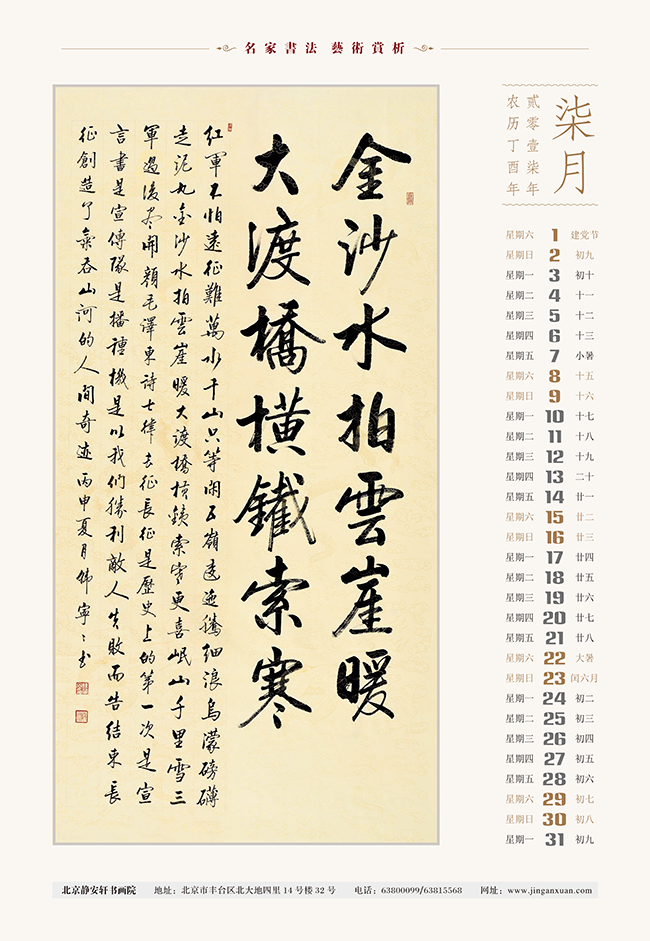 名家書法 藝術賞析
金沙水拍雲崖暖
大渡橋橫鐵索寒
紅軍不怕遠征難萬水千山只等閑五嶺逶迤騰細浪烏濛磅礴
走泥丸金沙水拍雲崖暖大渡橋橫鐵索寒更喜岷山千里雪三
軍過後盡開顏毛澤東詩七律長征長征是歷史上的第一次是宣
言書是宣傳隊是播種機是以我們勝利敵人失敗而告結束長
征創造了氣吞山河的人間奇迹丙申夏月寧〻书
柒月
贰零壹柒年
农历丁酉年
星期六 1 建党节
星期日 2 初九
星期一 3 初十
星期二 4 十一
星期三 5 十二
星期四 6 十三
星期五 7 小暑
星期六 8 十五
星期日 9 十六
星期一 10 十七
星期二 11 十八
星期三 12 十九
星期四 13 二十
星期五 14 廿一
星期六 15 廿二
星期日 16 廿三
星期一 17 廿四
星期二 18 廿五
星期三 19 廿六
星期四 20 廿七
星期五 21 廿八
星期六 22 大暑
星期日 23 闰六月
星期一 24 初二
星期二 25 初三
星期三 26 初四
星期四 27 初五
星期五 28 初六
星期六 29 初七
星期日 30 初八
星期一 31 初九
北京静安轩书画院 地址：北京市丰台区北大地四里14号楼32号 电话：63800099/63815568 网址：www.jinganxuan.com